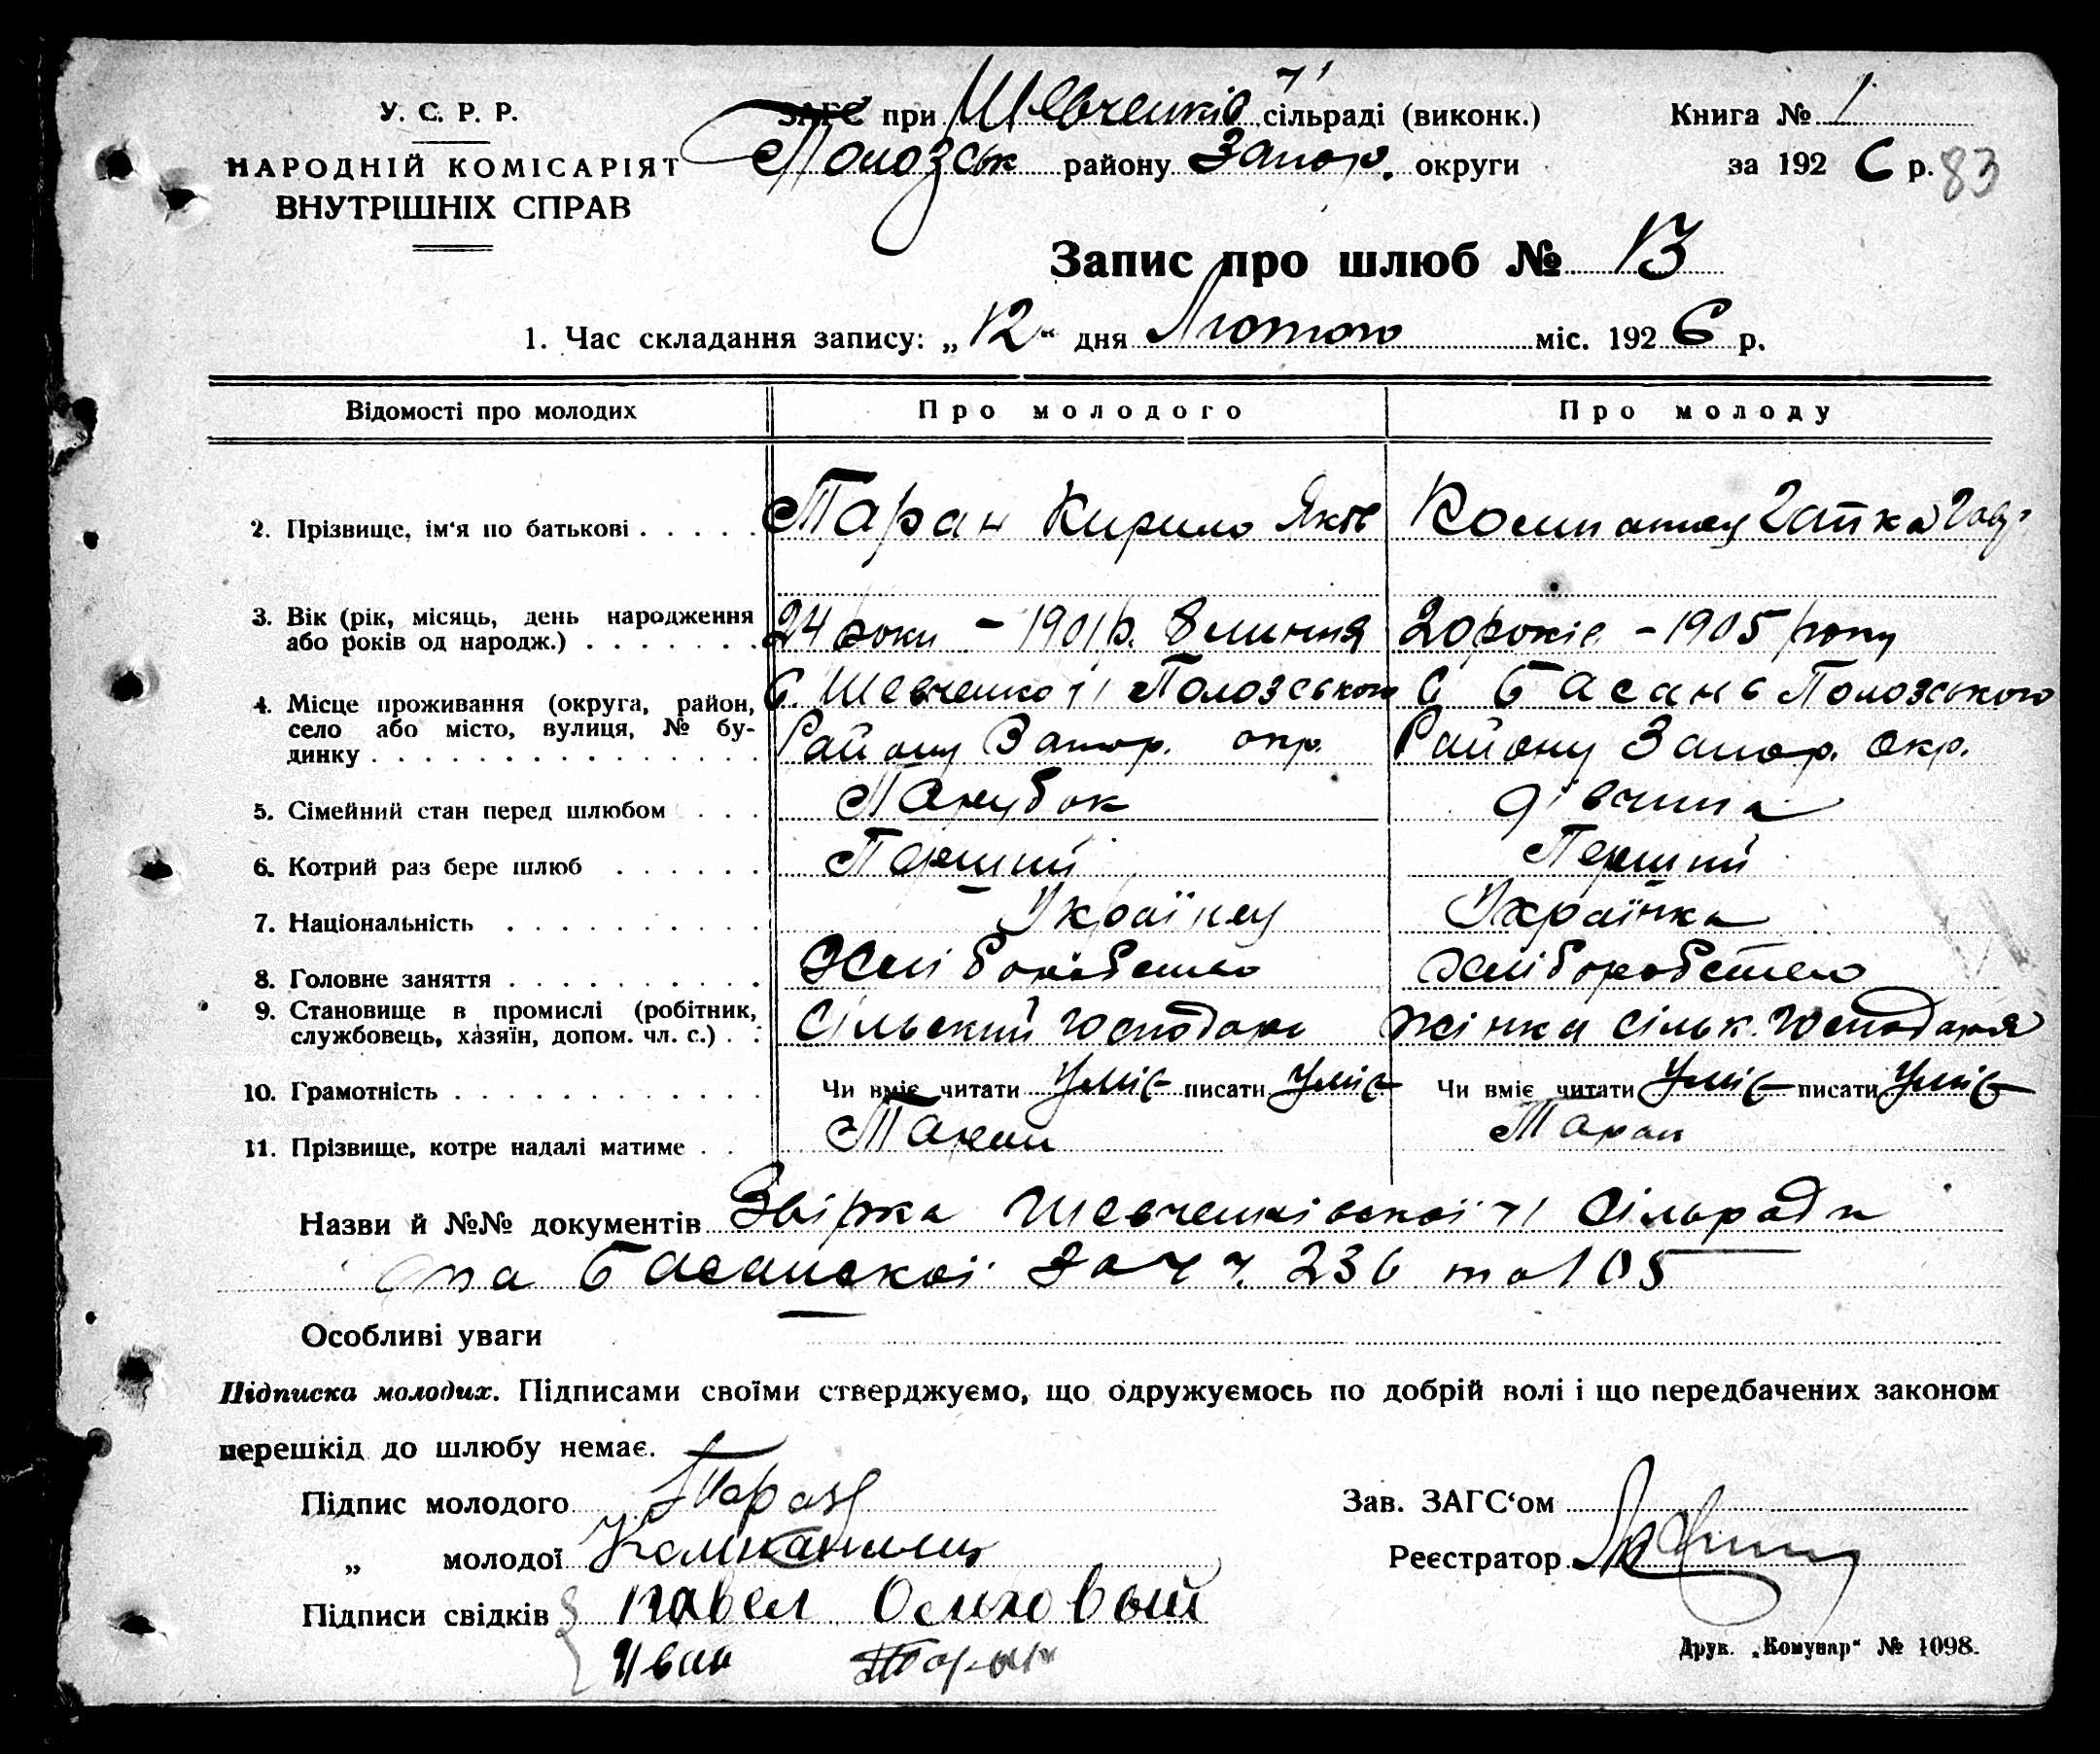 У. С. Р. Р.
НАРОДНІЙ КОМІСАРІЯТ
ВНУТРІШНІХ СПРАВ
ЗАГС при Шевченків І сільраді (виконк.)
Полозськ району Запор. округи
Книга № 1
за 1926 р. 83
Запис про шлюб № 13
1. Час складання запису: „12“ дня Лютого міс. 1926 р.
Відомості про молодих Про молодого Про молоду
2. Прізвище, ім'я по батькові Таран Кирило Яків Гапка
3. Вік (рік, місяць, день народження
або років од народж.) 24 роки – 1901 р. 8 липня 20 років – 1905 року
4. Місце проживання (округа, район,
село або місто, вулиця, № бу-
динку
С. Шевченко І Полозського С Басань Полозського
Району Запор. окр. Району Запор. Окр.
5. Сімейний стан перед шлюбом Парубок дівчина
6. Котрий раз бере шлюб Перший Перший
7. Національність Українец Українка
8. Головне заняття Хліборобство хліборобство
9. Становище в промислі (робітник,
службовець, хазяїн, допом. чл. с.) Сільский господарь жінка сільк. господаря
10. Грамотність Чи вміє читати Уміє писати Уміє Чи вміє читати Уміє писати Уміє
11. Прізвище, котре надалі матиме Таран Таран
Назви й №№ документів Звірка Шевченківскоі І Сільради
та Басанскоі за ч ч. 236 та 105
Особливі уваги
Підписка молодих. Підписами своїми стверджуємо, що одружуємось по добрій волі і що передбачених законом
перешкід до шлюбу немає.
Підпис молодого Таран
„ молодої
Підписи свідків Павел Ольховый
Иван Таран
Зав. ЗАГС'ом
Реєстратор
Друк. „Комунар“ № 1098.